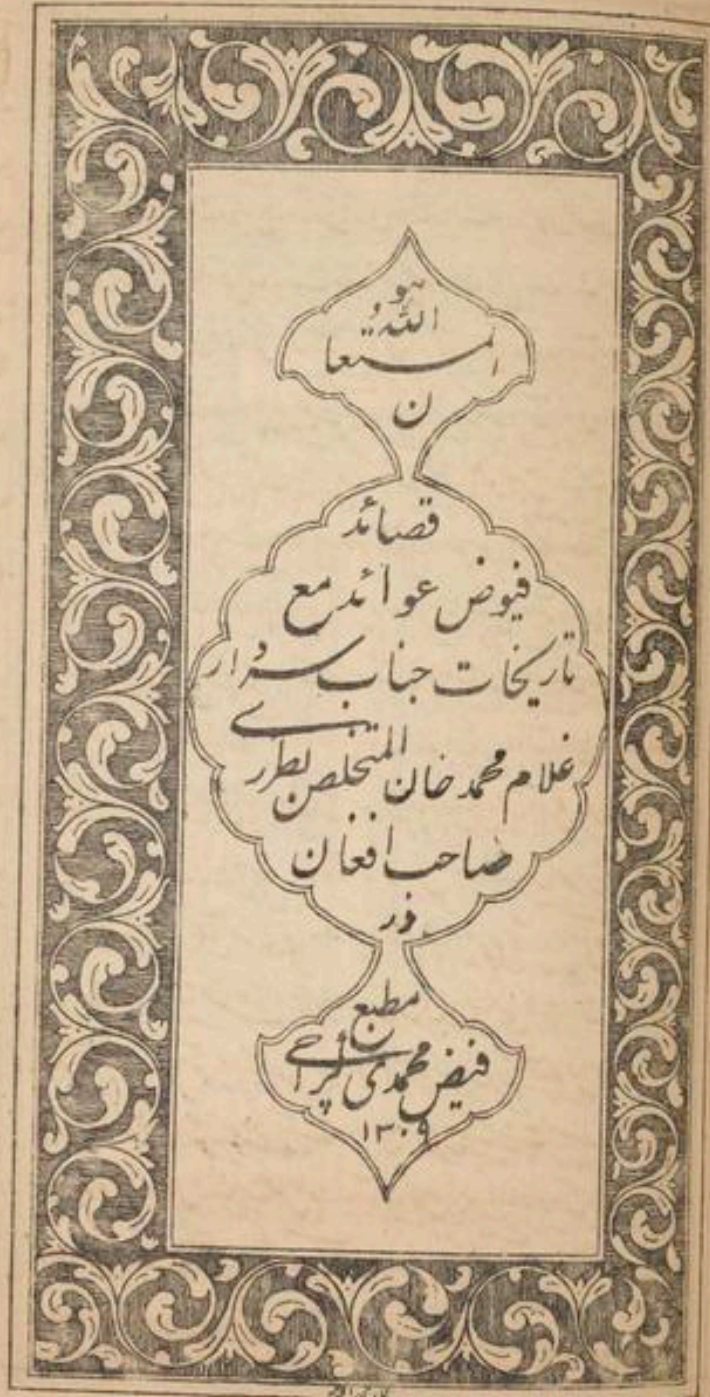 هو
اللهُ
المستعا
ن
قصائد
فیوض عوائد مع
تاریخات جناب سردار
غلام محمد خان المتخلص بطرزی
صاحب افغان
در
مطبع
فیض محمدی کراچی
۱۳۰۹